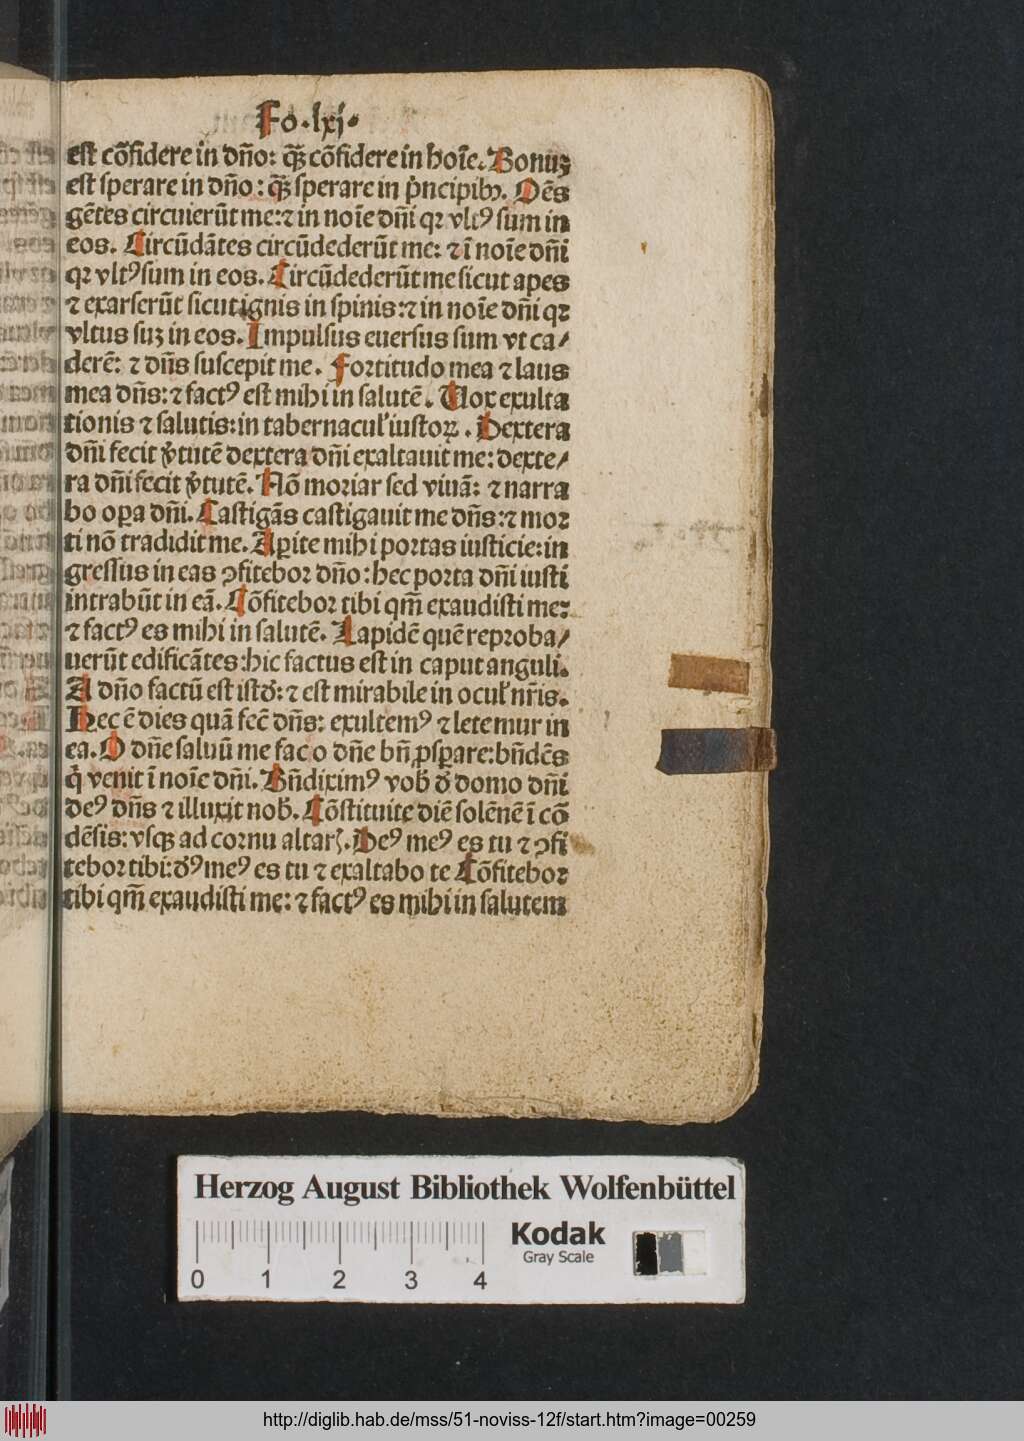 Fo. lxj.
est cōfidere in dño: qȝ̄ cōfidere in hoīe. Bonuȝ
est sperare in dño: qȝ̄ sperare in pͥncipibꝰ. Oēs
gētes circuierūt me: ⁊ in noīe dñi qꝛ vltꝰ sum in
eos. Circūdātes circūdederūt me: ⁊ ī noīe dñi
qꝛ vltꝰ sum in eos. Circūdederūt me sicut apes
⁊ exarserūt sicut ignis in spinis: ⁊ in noīe dñi qꝛ
vltus suȝ in eos. Impulsus euersus sum vt ca/
derē: ⁊ dñs suscepit me. Fortitudo mea ⁊ laus
mea dñs: ⁊ factꝰ est mihi in salutē. Uox exulta
tionis ⁊ salutis: in tabernacul' iustoꝝ. Dextera
dñi fecit vͥtutē dextera dñi exaltauit me: dexte/
ra dñi fecit vͥtutē. Nō moriar sed viuā: ⁊ narra
bo oꝑa dñi. Castigās castigauit me dñs: ⁊ mor
ti nō tradidit me. Aꝑite mihi portas iusticie: in
gressus in eas ꝯfitebor dño: hec porta dñi iusti
intrabūt in eā. Cōfitebor tibi qm̄ exaudisti me:
⁊ factꝰ es mihi in salutē. Lapidē quē reproba/
uerūt edificātes: hic factus est in caput anguli.
A dño factū est istđ: ⁊ est mirabile in ocul' nr̄is.
Hec ē dies quā fec̄ dñs: exultemꝰ ⁊ letemur in
ea. O dñe saluū me fac o dñe bn̄ ꝓsꝑare: bñdēs
qͥ venit ī noīe dñi. Bñdiximꝰ vob̄ đ domo dñi
deꝰ dñs ⁊ illuxit nob̄. Cōstituite diē solēnē ī cō
dēsis: vsqȝ ad cornu altarꝭ. Deꝰ meꝰ es tu ⁊ ꝯfi
tebor tibi: đꝰ meꝰ es tu ⁊ exaltabo te Cōfitebor
tibi qm̄ exaudisti me: ⁊ factꝰ es mihi in salutem
Herzog August Bibliothek Wolfenbüttel
Kodak
Gray Scale
0 1 2 3 4
http://diglib.hab.de/mss/51-noviss-12f/start.htm?image=00259